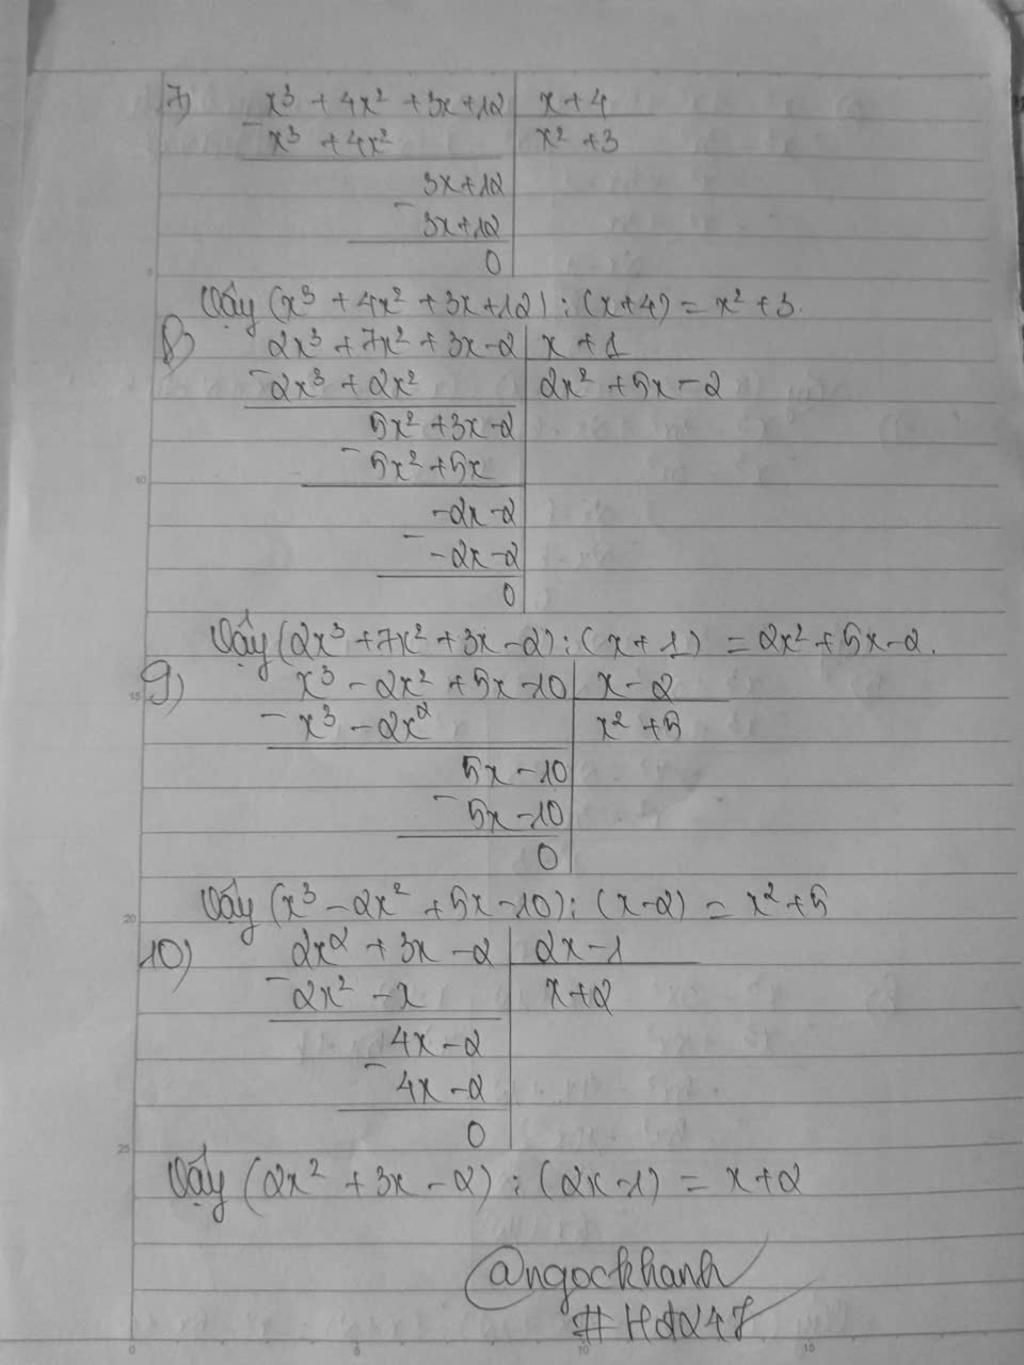 7) x³ + 4x² + 3x + 12 | x + 4
- x³ + 4x² | x² + 3
3x + 12
- 3x + 12
0
Vậy (x³ + 4x² + 3x + 12) : (x + 4) = x² + 3.
8) 2x³ + 7x² + 3x - 2 | x + 1
- 2x³ + 2x² | 2x² + 5x - 2
5x² + 3x - 2
- 5x² + 5x
-2x - 2
- -2x - 2
0
Vậy (2x³ + 7x² + 3x - 2) : (x + 1) = 2x² + 5x - 2.
9) x³ - 2x² + 5x - 10 | x - 2
- x³ - 2x² | x² + 5
5x - 10
- 5x - 10
0
Vậy (x³ - 2x² + 5x - 10) : (x - 2) = x² + 5
10) 2x² + 3x - 2 | 2x - 1
- 2x² - x | x + 2
4x - 2
- 4x - 2
0
Vậy (2x² + 3x - 2) : (2x - 1) = x + 2
@ngockhanh
#Hd247